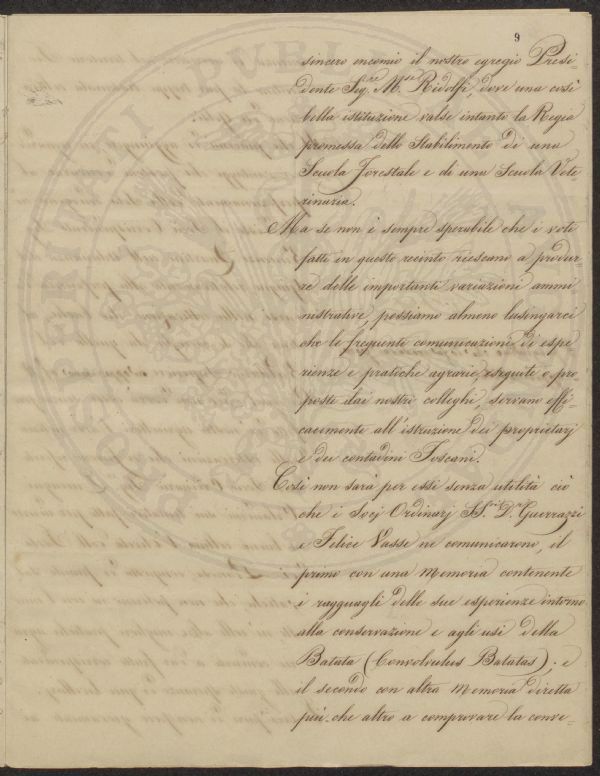 9
sincero encomio il nostro egregio Presi-
dente Sig.re M.se Ridolfi, dove una così
bella istituzione valse intanto la Regia
promessa dello Stabilimento di una
Scuola Forestale e di una Scuola Vete-
rinaria.
Ma se non è sempre sperabile che i voti
fatti in questo recinto riescano a produr-
re delle importanti variazioni ammi
nistrative, possiamo almeno lusingarci
che le frequenti comunicazioni di espe-
rienze e pratiche agrarie, eseguite o pro-
poste dai nostri colleghi, servano effi-
cacemente all'istruzione dei proprietarj
e dei contadini Toscani.
Così non sarà per essi senza utilità ciò
che i Socj Ordinarj SS.ri D.r Guerrazzi
e Felice Vasse ne comunicarono, il
primo con una Memoria contenente
i ragguagli delle sue esperienze intorno
alla conservazione e agli usi della
Batata (Convolvulus Batatas); e
il secondo con altra Memoria diretta
più che altro a comprovare la conve-